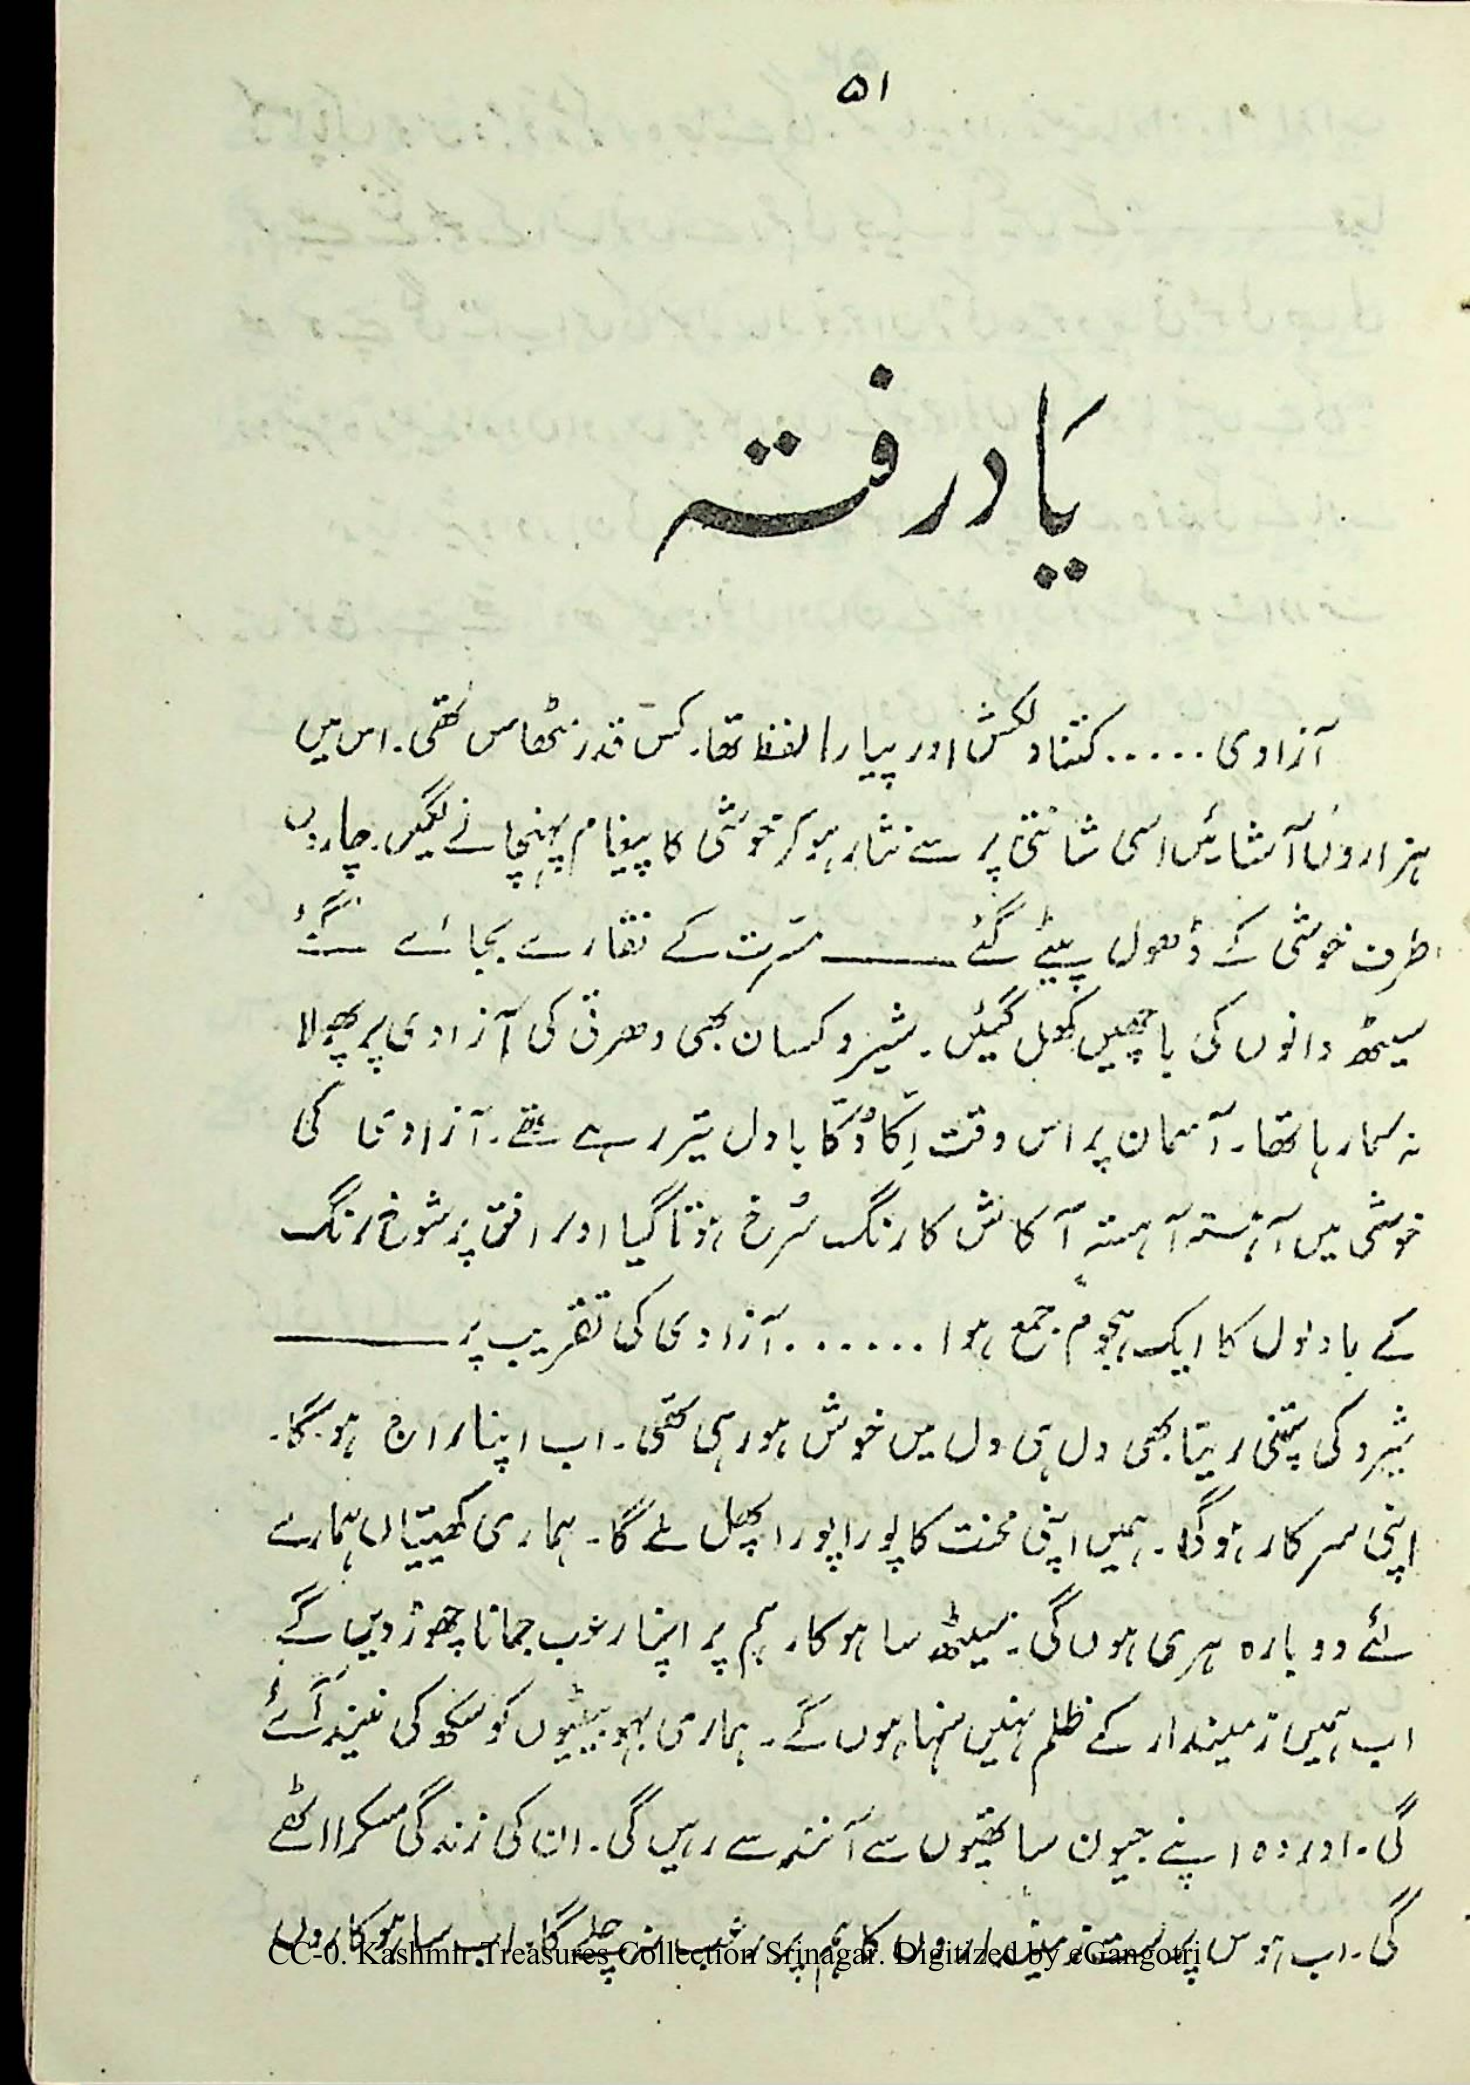 ۵۱
یاد رفتہ
آزادی ..... کتنا دلکش اور پیارا لفظ تھا۔ کس قدر مٹھاس تھی۔ اس میں
ہزاروں آشائیں اسی شانتی پر سے نثار ہو کر خوشی کا پیغام پہنچانے لگیں۔ چاروں
طرف خوشی کے ڈھول پیٹے گئے ——— مسّرت کے نقارے بجائے گئے
سیٹھ دانوں کی باچھیں کھل گئیں۔ شیرو کسان بھی دھرتی کی آزادی پر پھولا
نہ سما رہا تھا۔ آسمان پر اس وقت اِکّا دُکّا بادل تیر رہے تھے۔ آزادی کی
خوشی میں آہستہ آہستہ آکاش کا رنگ سُرخ ہوتا گیا اور افق پر شوخ رنگ
کے بادلوں کا ایک ہجوم جمع ہوا ...... آزادی کی تقریب پر ———
شیرو کی پتنی ریتا بھی دل ہی دل میں خوش ہو رہی تھی۔ اب اپنا راج ہوگا۔
اپنی سرکار ہوگی۔ ہمیں اپنی محنت کا پورا پورا پھل ملے گا۔ ہماری کھیتیاں ہمارے
لئے دوبارہ ہری ہوں گی۔ سیٹھ ساہوکار ہم پر اپنا رعب جمانا چھوڑ دیں گے
اب ہمیں زمیندار کے ظلم نہیں سہنا ہوں گے۔ ہماری بہو بیٹیوں کو سکھ کی نیند آئے
گی۔ اور وہ اپنے جیون ساتھیوں سے آنند سے رہیں گی۔ ان کی زندگی مسکرا اٹھے
گی۔ اب ہوس پرست زمینداروں کا ہم پر نہ چلے گا۔ اب ساہوکاروں
CC-0. Kashmir Treasures Collection Srinagar. Digitized by eGangotri